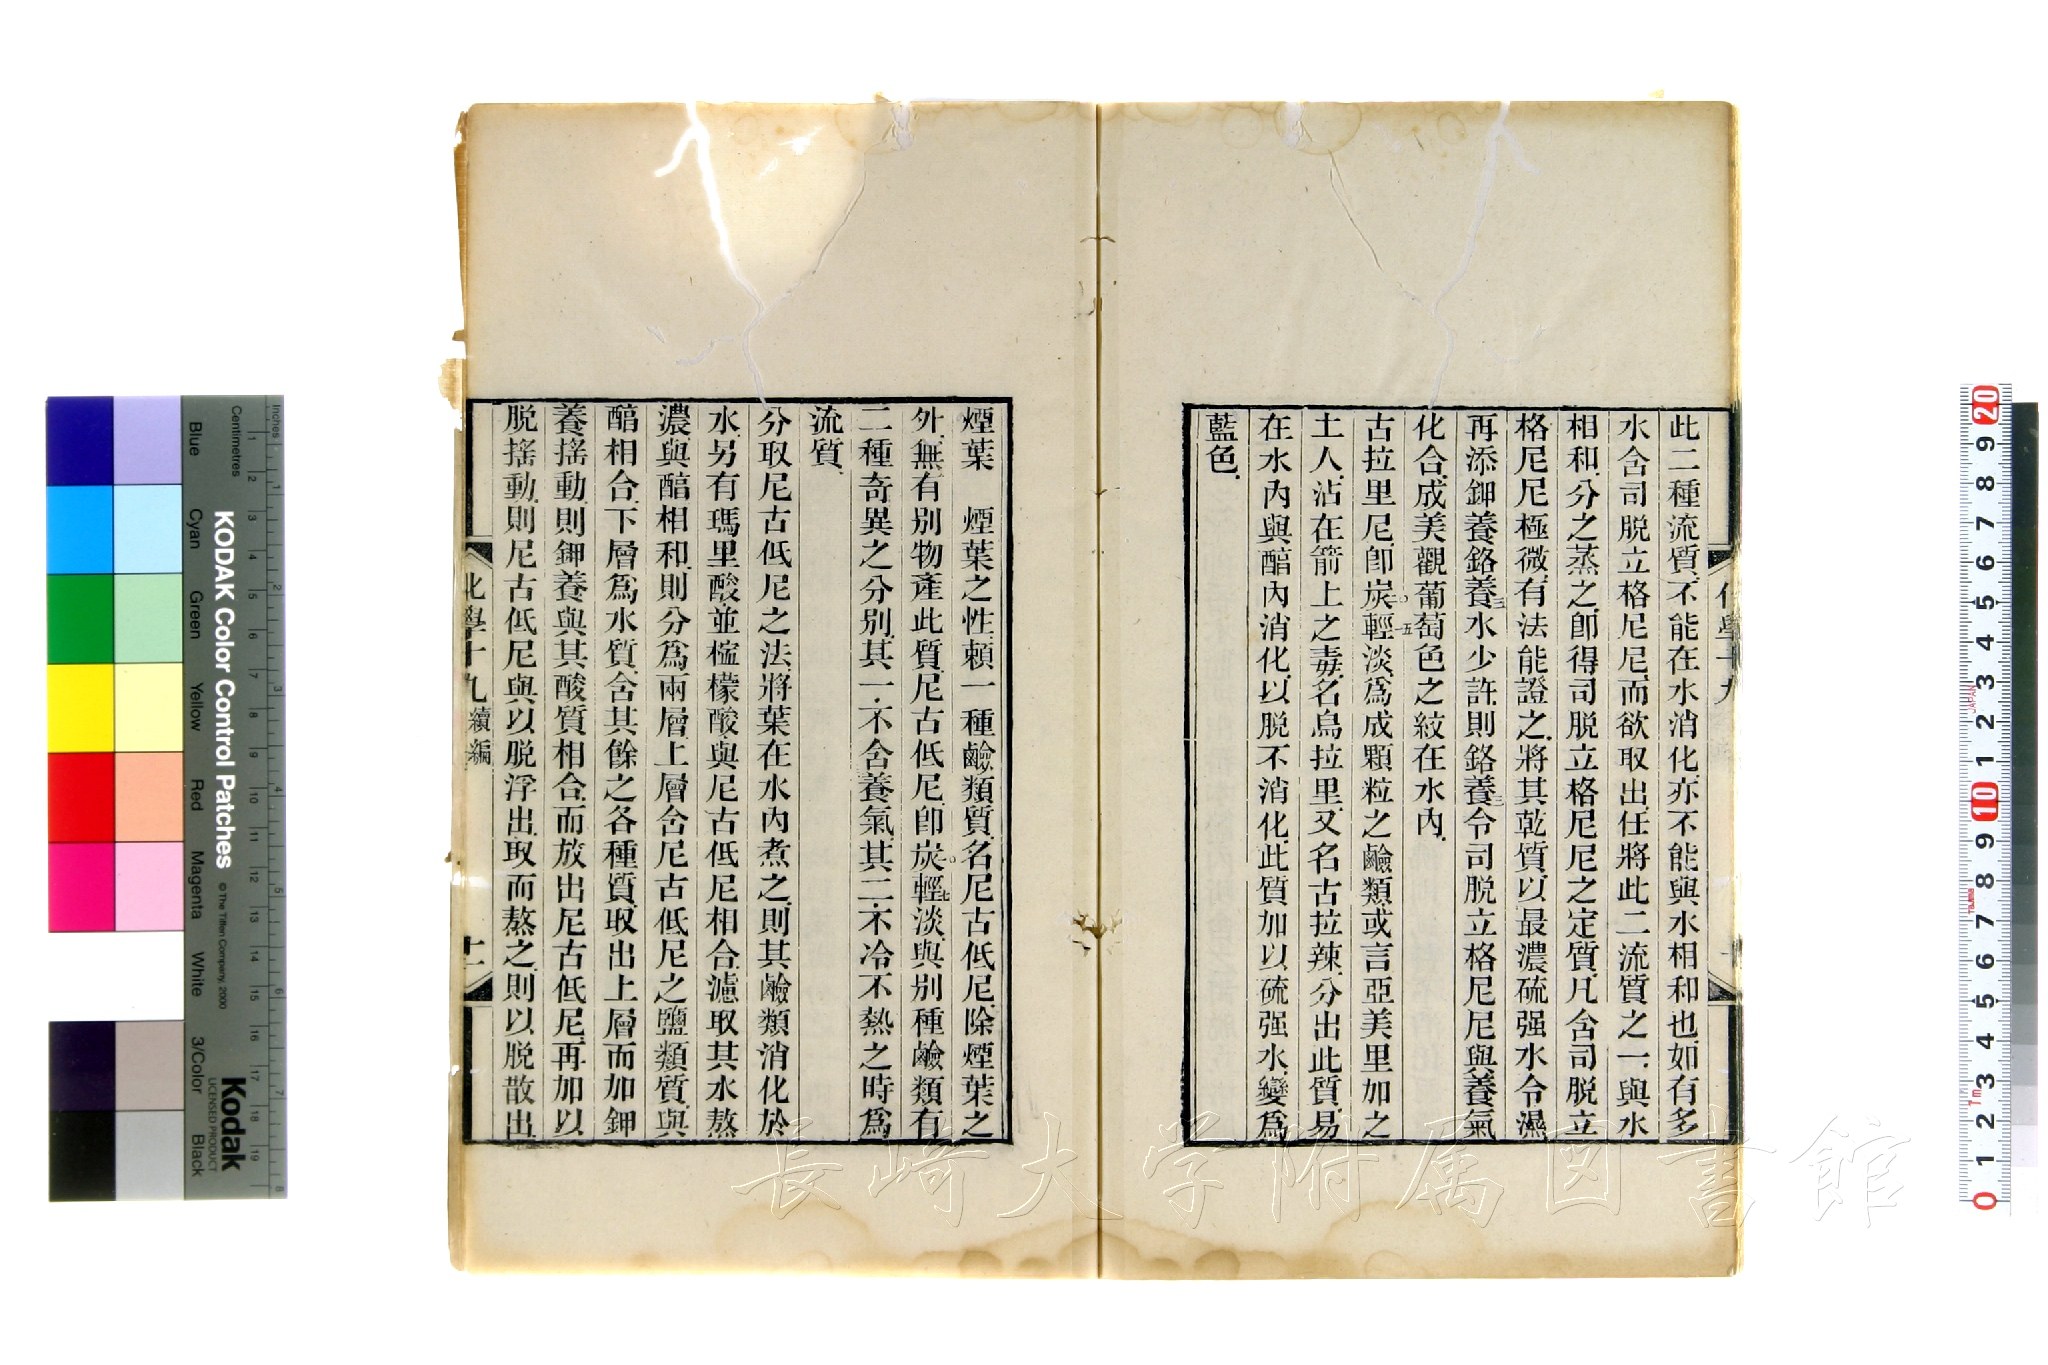 此二種流質不能在水消化亦不能與水相和也如有多
水含司脫立格尼尼而欲取出任將此二流質之一與水
相和分之蒸之卽得司脫立格尼尼之定質凡含司脫立
格尼尼極微有法能證之將其乾質以最濃硫强水令濕
再添鉀養鉻養三水少許則鉻養三令司脫立格尼尼與養氣
化合成美觀葡萄色之紋在水內
古拉里尼卽炭一〇輕一五淡爲成顆粒之鹼類或言亞美里加之
土人沾在箭上之毒名烏拉里又名古拉辣分出此質易
在水內與醕內消化以脫不消化此質加以硫强水變爲
藍色
煙葉　煙葉之性賴一種鹼類質名尼古低尼除煙葉之
外無有別物產此質尼古低尼卽炭一〇輕七淡與別種鹼類有
二種奇異之分別其一不含養氣其二不冷不熱之時爲
流質
分取尼古低尼之法將葉在水內煮之則其鹼類消化於
水另有瑪里酸並檻檬酸與尼古低尼相合濾取其水熬
濃與醕相和則分爲兩層上層含尼古低尼之鹽類質與
醕相合下層爲水質含其餘之各種質取出上層而加鉀
養搖動則鉀養與其酸質相合而放出尼古低尼再加以
脫搖動則尼古低尼與以脫浮出取而熬之則以脫散出
化學十九
續編
化學十九
長崎大学附属図書館
KODAK Color Control Patches
© The Tiffen Company, 2000
Kodak
LICENSED PRODUCT
Inches
Centimetres
Blue
Cyan
Green
Yellow
Red
Magenta
White
3/Color
Black
1 2 3 4 5 6 7 8
1 2 3 4 5 6 7 8 9 10 11 12 13 14 15 16 17 18 19
20 9 8 7 6 5 4 3 2 1 10 9 8 7 6 5 4 3 2 1 0
JAPAN
7m